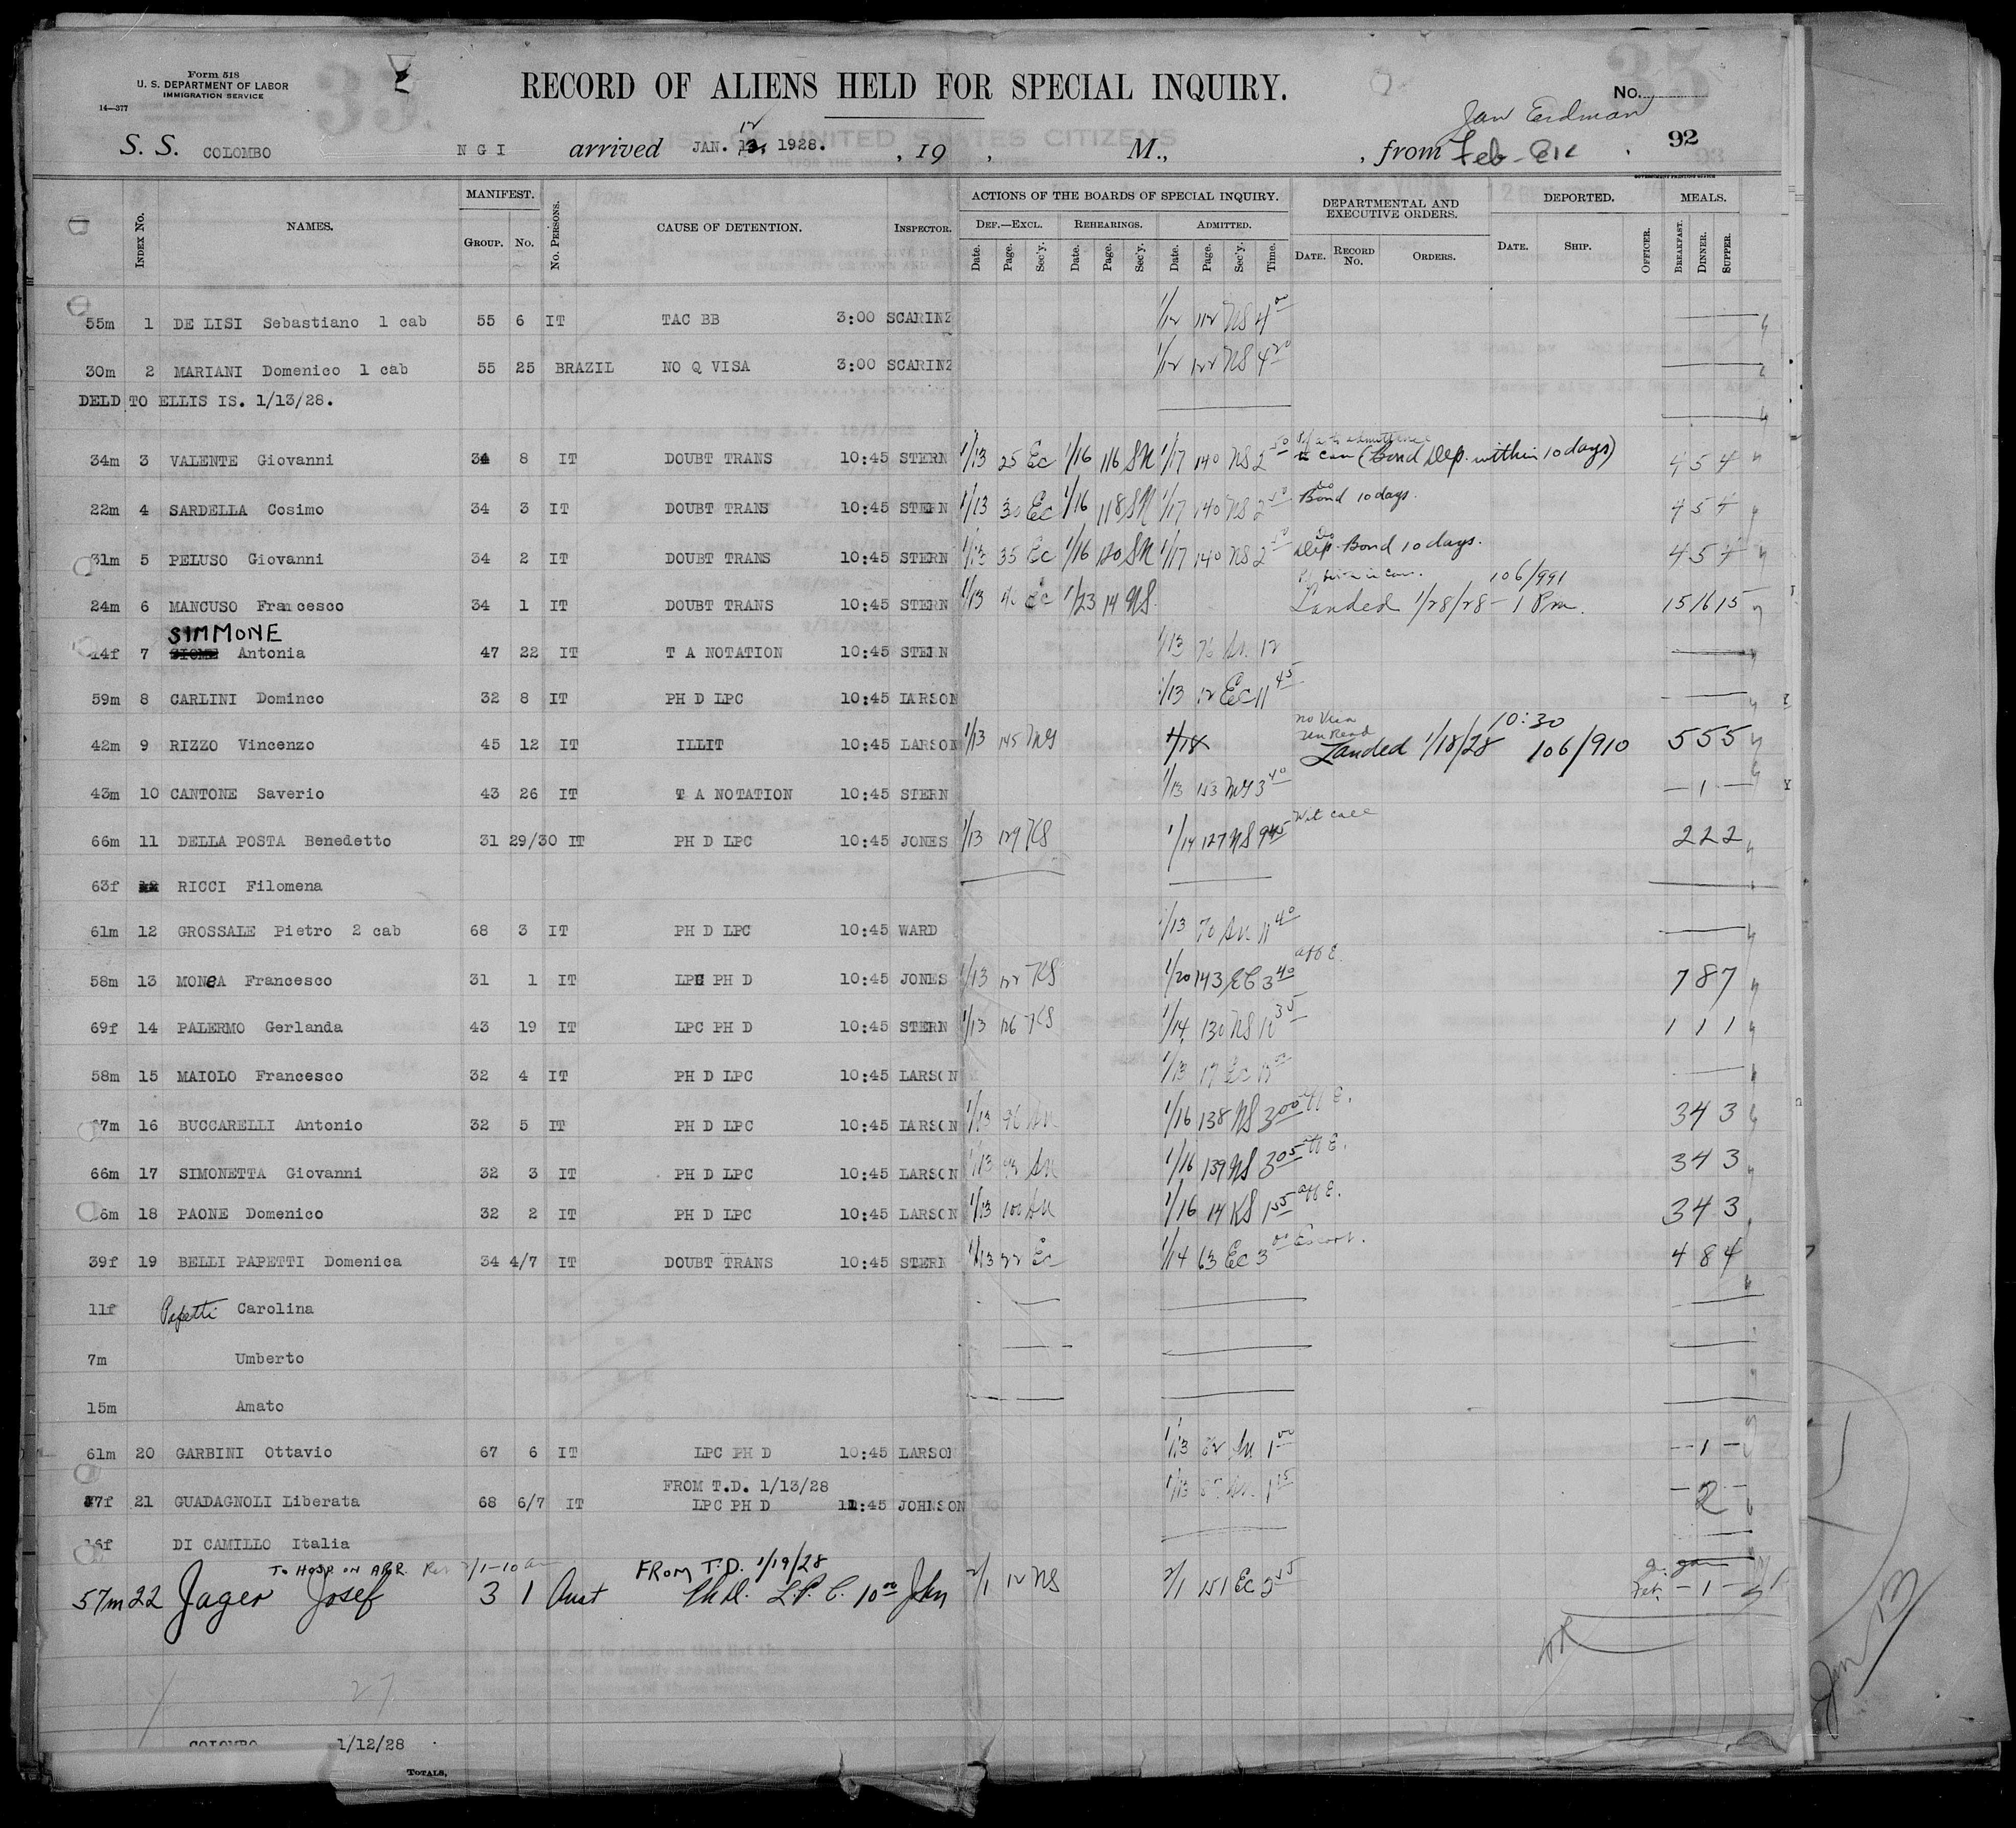 Form 518
U. S. DEPARTMENT OF LABOR
IMMIGRATION SERVICE
14—377
RECORD OF ALIENS HELD FOR SPECIAL INQUIRY.
No.
Jan Erdman
S. S. COLOMBO N G I arrived JAN. 12 1928. , 19 , M., , from Feb - . 92
INDEX No. NAMES. MANIFEST. GROUP. No. No. PERSONS. CAUSE OF DETENTION. INSPECTOR. ACTIONS OF THE BOARDS OF SPECIAL INQUIRY. DEF.—EXCL. Date. Page. Sec'y. REHEARINGS. Date. Page. Sec'y. ADMITTED. Date. Page. Sec'y. Time. DEPARTMENTAL AND EXECUTIVE ORDERS. DATE. RECORD No. ORDERS. DEPORTED. DATE. SHIP. OFFICER. MEALS. BREAKFAST. DINNER. SUPPER.
55m 1 DE LISI Sebastiano 1 cab 55 6 IT TAC BB 3:00 SCARINZ 1/12 112 NS 4 00
30m 2 MARIANI Domenico 1 cab 55 25 BRAZIL NO Q VISA 3:00 SCARINZ 1/12 122 NS 4 20
DELD TO ELLIS IS. 1/13/28.
34m 3 VALENTE Giovanni 34 8 IT DOUBT TRANS 10:45 STERN 1/13 25 Ec 1/16 116 SN 1/17 140 NS 2 50 (Bond Dep. within 10 days) 4 5 4
22m 4 SARDELLA Cosimo 34 3 IT DOUBT TRANS 10:45 STERN 1/13 30 Ec 1/16 118 SN 1/17 140 NS 2 50 Do Bond 10 days. 4 5 4
31m 5 PELUSO Giovanni 34 2 IT DOUBT TRANS 10:45 STERN 1/13 35 Ec 1/16 120 SN 1/17 140 NS 2 50 Do Dep. Bond 10 days. 4 5 4
24m 6 MANCUSO Francesco 34 1 IT DOUBT TRANS 10:45 STERN 1/13 40 Ec 1/23 14 NS 106/991 Landed 1/28/28 - 1 Pm. 15 16 15
SIMMONE
14f 7 Antonia 47 22 IT T A NOTATION 10:45 STERN 1/13 76 Sn 12
59m 8 CARLINI Dominco 32 8 IT PH D LPC 10:45 LARSON 1/13 12 Ec 11 45
42m 9 RIZZO Vincenzo 45 12 IT ILLIT 10:45 LARSON 1/13 145 MG 1/18 no Visa Un Read Landed 1/18/28 10:30 106/910 5 5 5
43m 10 CANTONE Saverio 43 26 IT T A NOTATION 10:45 STERN 1/13 153 MG 3 40 — 1 —
66m 11 DELLA POSTA Benedetto 31 29/30 IT PH D LPC 10:45 JONES 1/13 129 KS 1/14 127 NS 9 45 Wit call 2 2 2
63f RICCI Filomena
61m 12 GROSSALE Pietro 2 cab 68 3 IT PH D LPC 10:45 WARD 1/13 70 Sn 11 40
58m 13 MONeA Francesco 31 1 IT LPC PH D 10:45 JONES 1/13 122 KS 1/20 143 EC 3 40 aff E. 7 8 7
69f 14 PALERMO Gerlanda 43 19 IT LPC PH D 10:45 STERN 1/13 126 KS 1/14 130 NS 10 35 1 1 1
58m 15 MAIOLO Francesco 32 4 IT PH D LPC 10:45 LARSON 1/13 17 Ec 12 00
67m 16 BUCCARELLI Antonio 32 5 IT PH D LPC 10:45 LARSON 1/13 96 Sn 1/16 138 NS 3 00 aff E. 3 4 3
66m 17 SIMONETTA Giovanni 32 3 IT PH D LPC 10:45 LARSON 1/13 Sn 1/16 139 NS 3 05 aff E. 3 4 3
6m 18 PAONE Domenico 32 2 IT PH D LPC 10:45 LARSON 1/13 100 Sn 1/16 14 KS 1 55 aff E. 3 4 3
39f 19 BELLI PAPETTI Domenica 34 4/7 IT DOUBT TRANS 10:45 STERN 1/13 22 Ec 1/14 63 Ec 3 00 Escort. 4 8 4
11f Papetti Carolina
7m Umberto
15m Amato
61m 20 GARBINI Ottavio 67 6 IT LPC PH D 10:45 LARSON 1/13 82 Sn 1 00 — 1 —
FROM T.D. 1/13/28
37f 21 GUADAGNOLI Liberata 68 6/7 IT LPC PH D 11:45 JOHNSON 1/13 Sn 1 15 — 2 —
16f DI CAMILLO Italia
TO HOSP. ON ARR. Rec 2/1-10 am FROM T.D. 1/19/28
57m 22 Jager Josef 3 1 Aust Ph D. L.P.C. 10 00 Jhn 2/1 12 NS 2/1 151 Ec 2 55 Feb. — 1 —
27
COLOMBO 1/12/28
TOTALS,
Jan 13